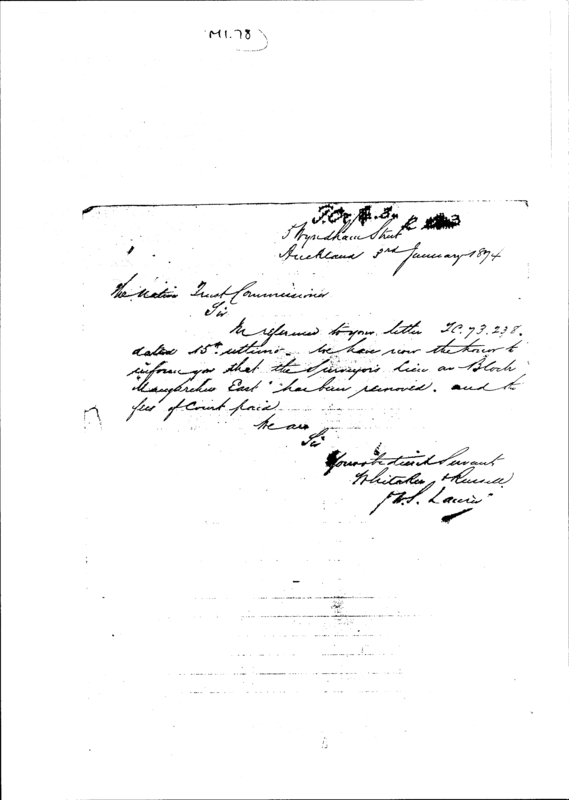 M1.78
Wyndham Street
Auckland 3rd January 1874
The Native Trust Commissioner
Sir
In reference to your letter T.C. 73.238.
dated 15th ultimo. We have now the honor to
inform you that the Surveyors lien on Block
East" has been removed. and the
fees of Court paid
We are
Sir
Your obedient Servant
Whitaker & Russell